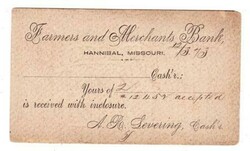 Farmers and Merchants Bank,
HANNIBAL, MISSOURI. 12/3 73
Cash'r.:
Yours of 2
#12458 accepted
is received with inclosure.
A. R. Levering, Cash'r.